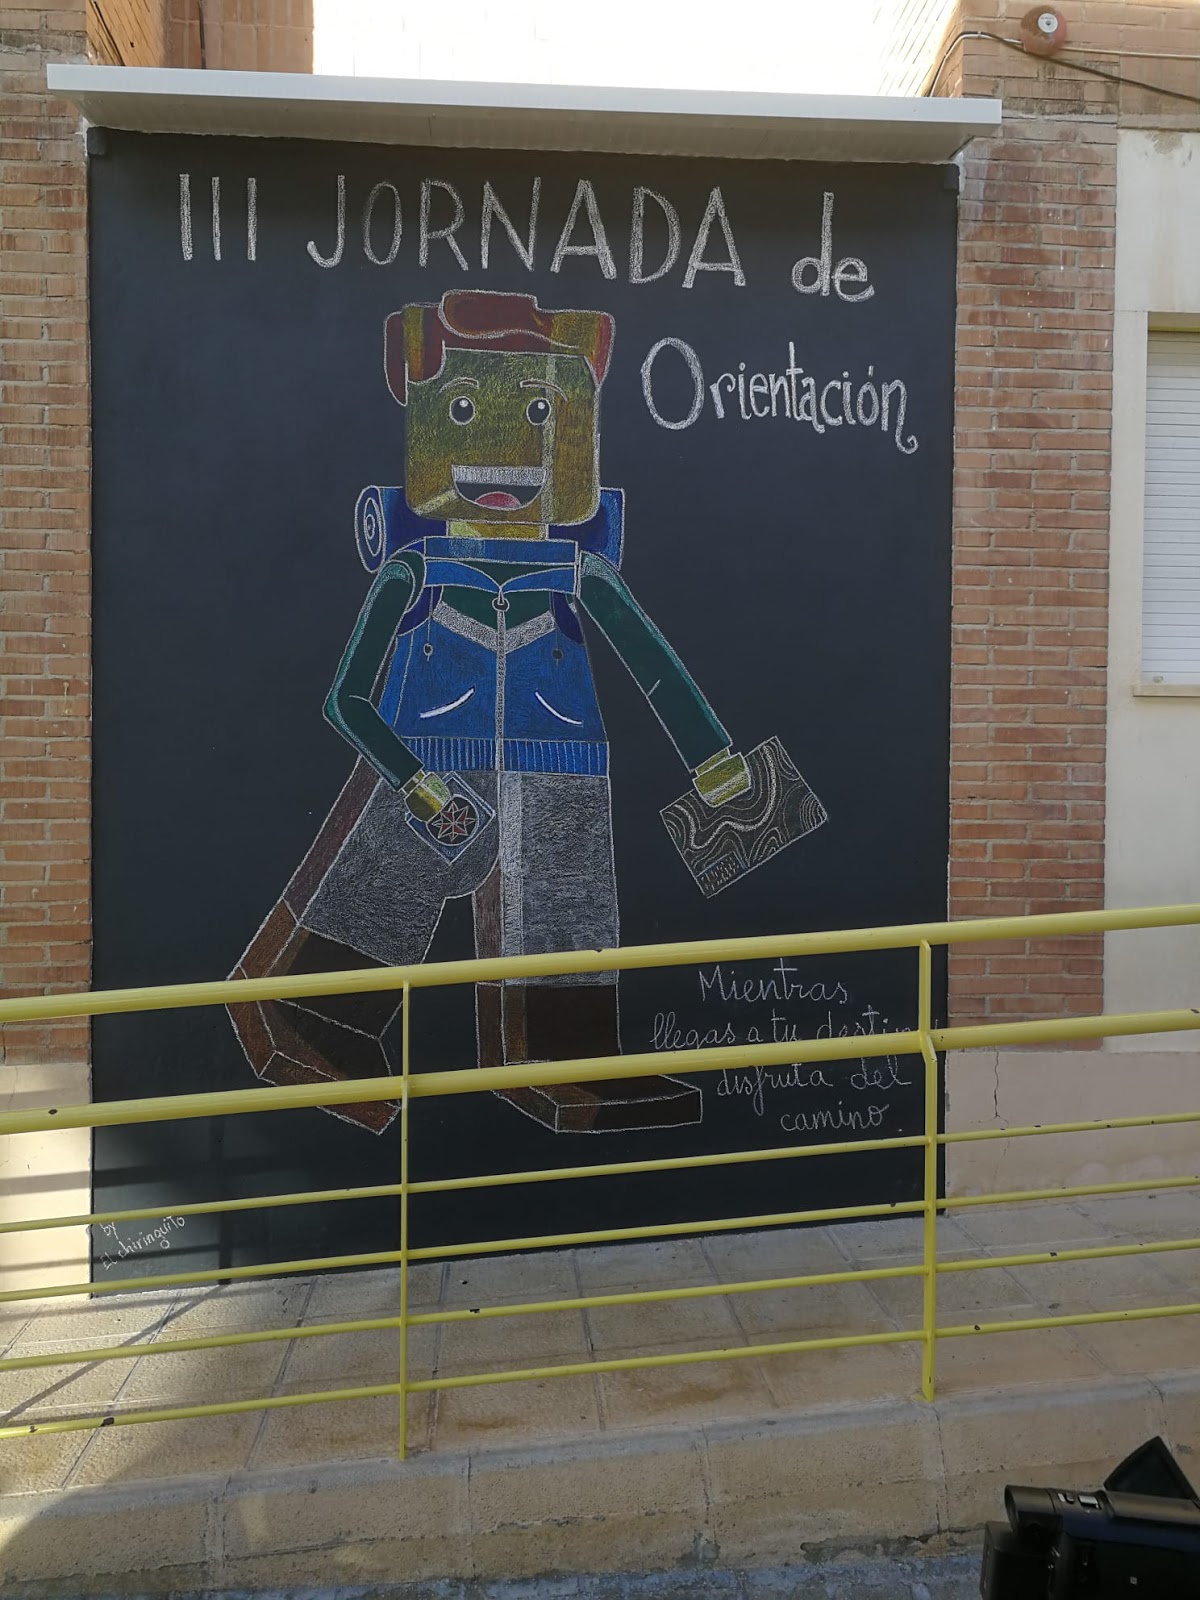 III JORNADA de
Orientación
Mientras
llegas a tu destin
disfruta del
camino
by
El chiringuito